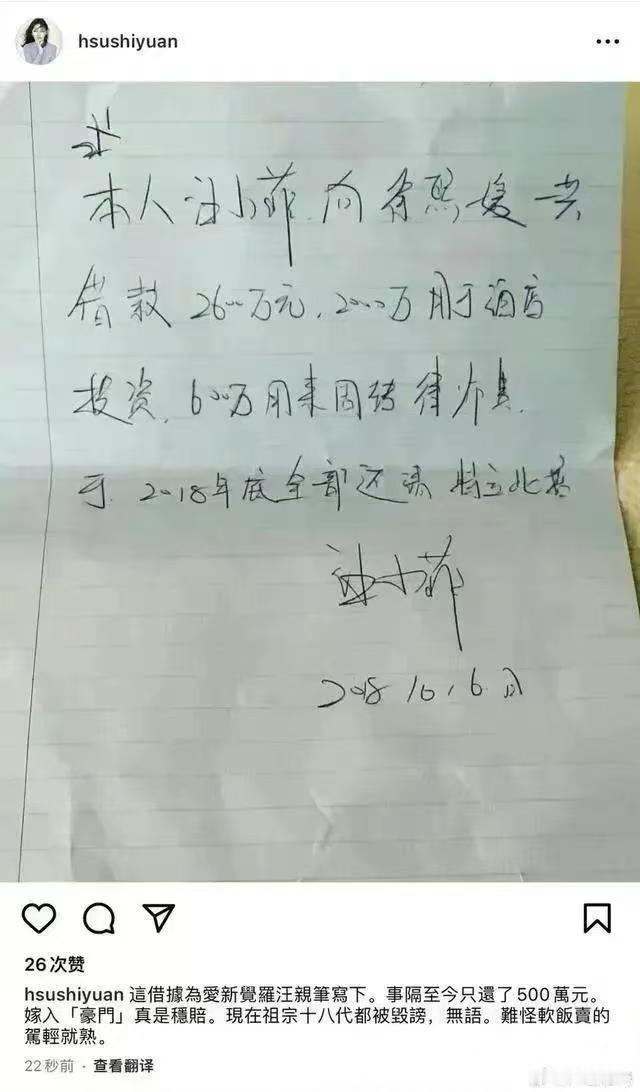 hsushiyuan
本人汪小菲向徐熙媛共
借款2600万元,2000万用于酒店
投资,600万用来周转律师费.
于2018年底全部还清 特立此
汪小菲
2018 10,6.
26次赞
hsushiyuan 這借據為愛新覺羅汪親筆寫下。事隔至今只還了500萬元。
嫁入「豪門」真是穩賠。現在祖宗十八代都被毀謗，無語。難怪軟飯賣的
駕輕就熟。
22秒前 · 查看翻译